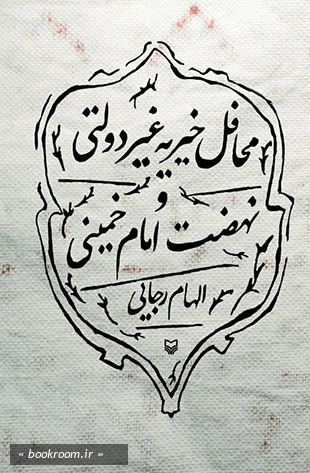 محافل خیریه غیر دولتی
و
نهضت امام خمینی
الهام رجایی
« bookroom.ir »